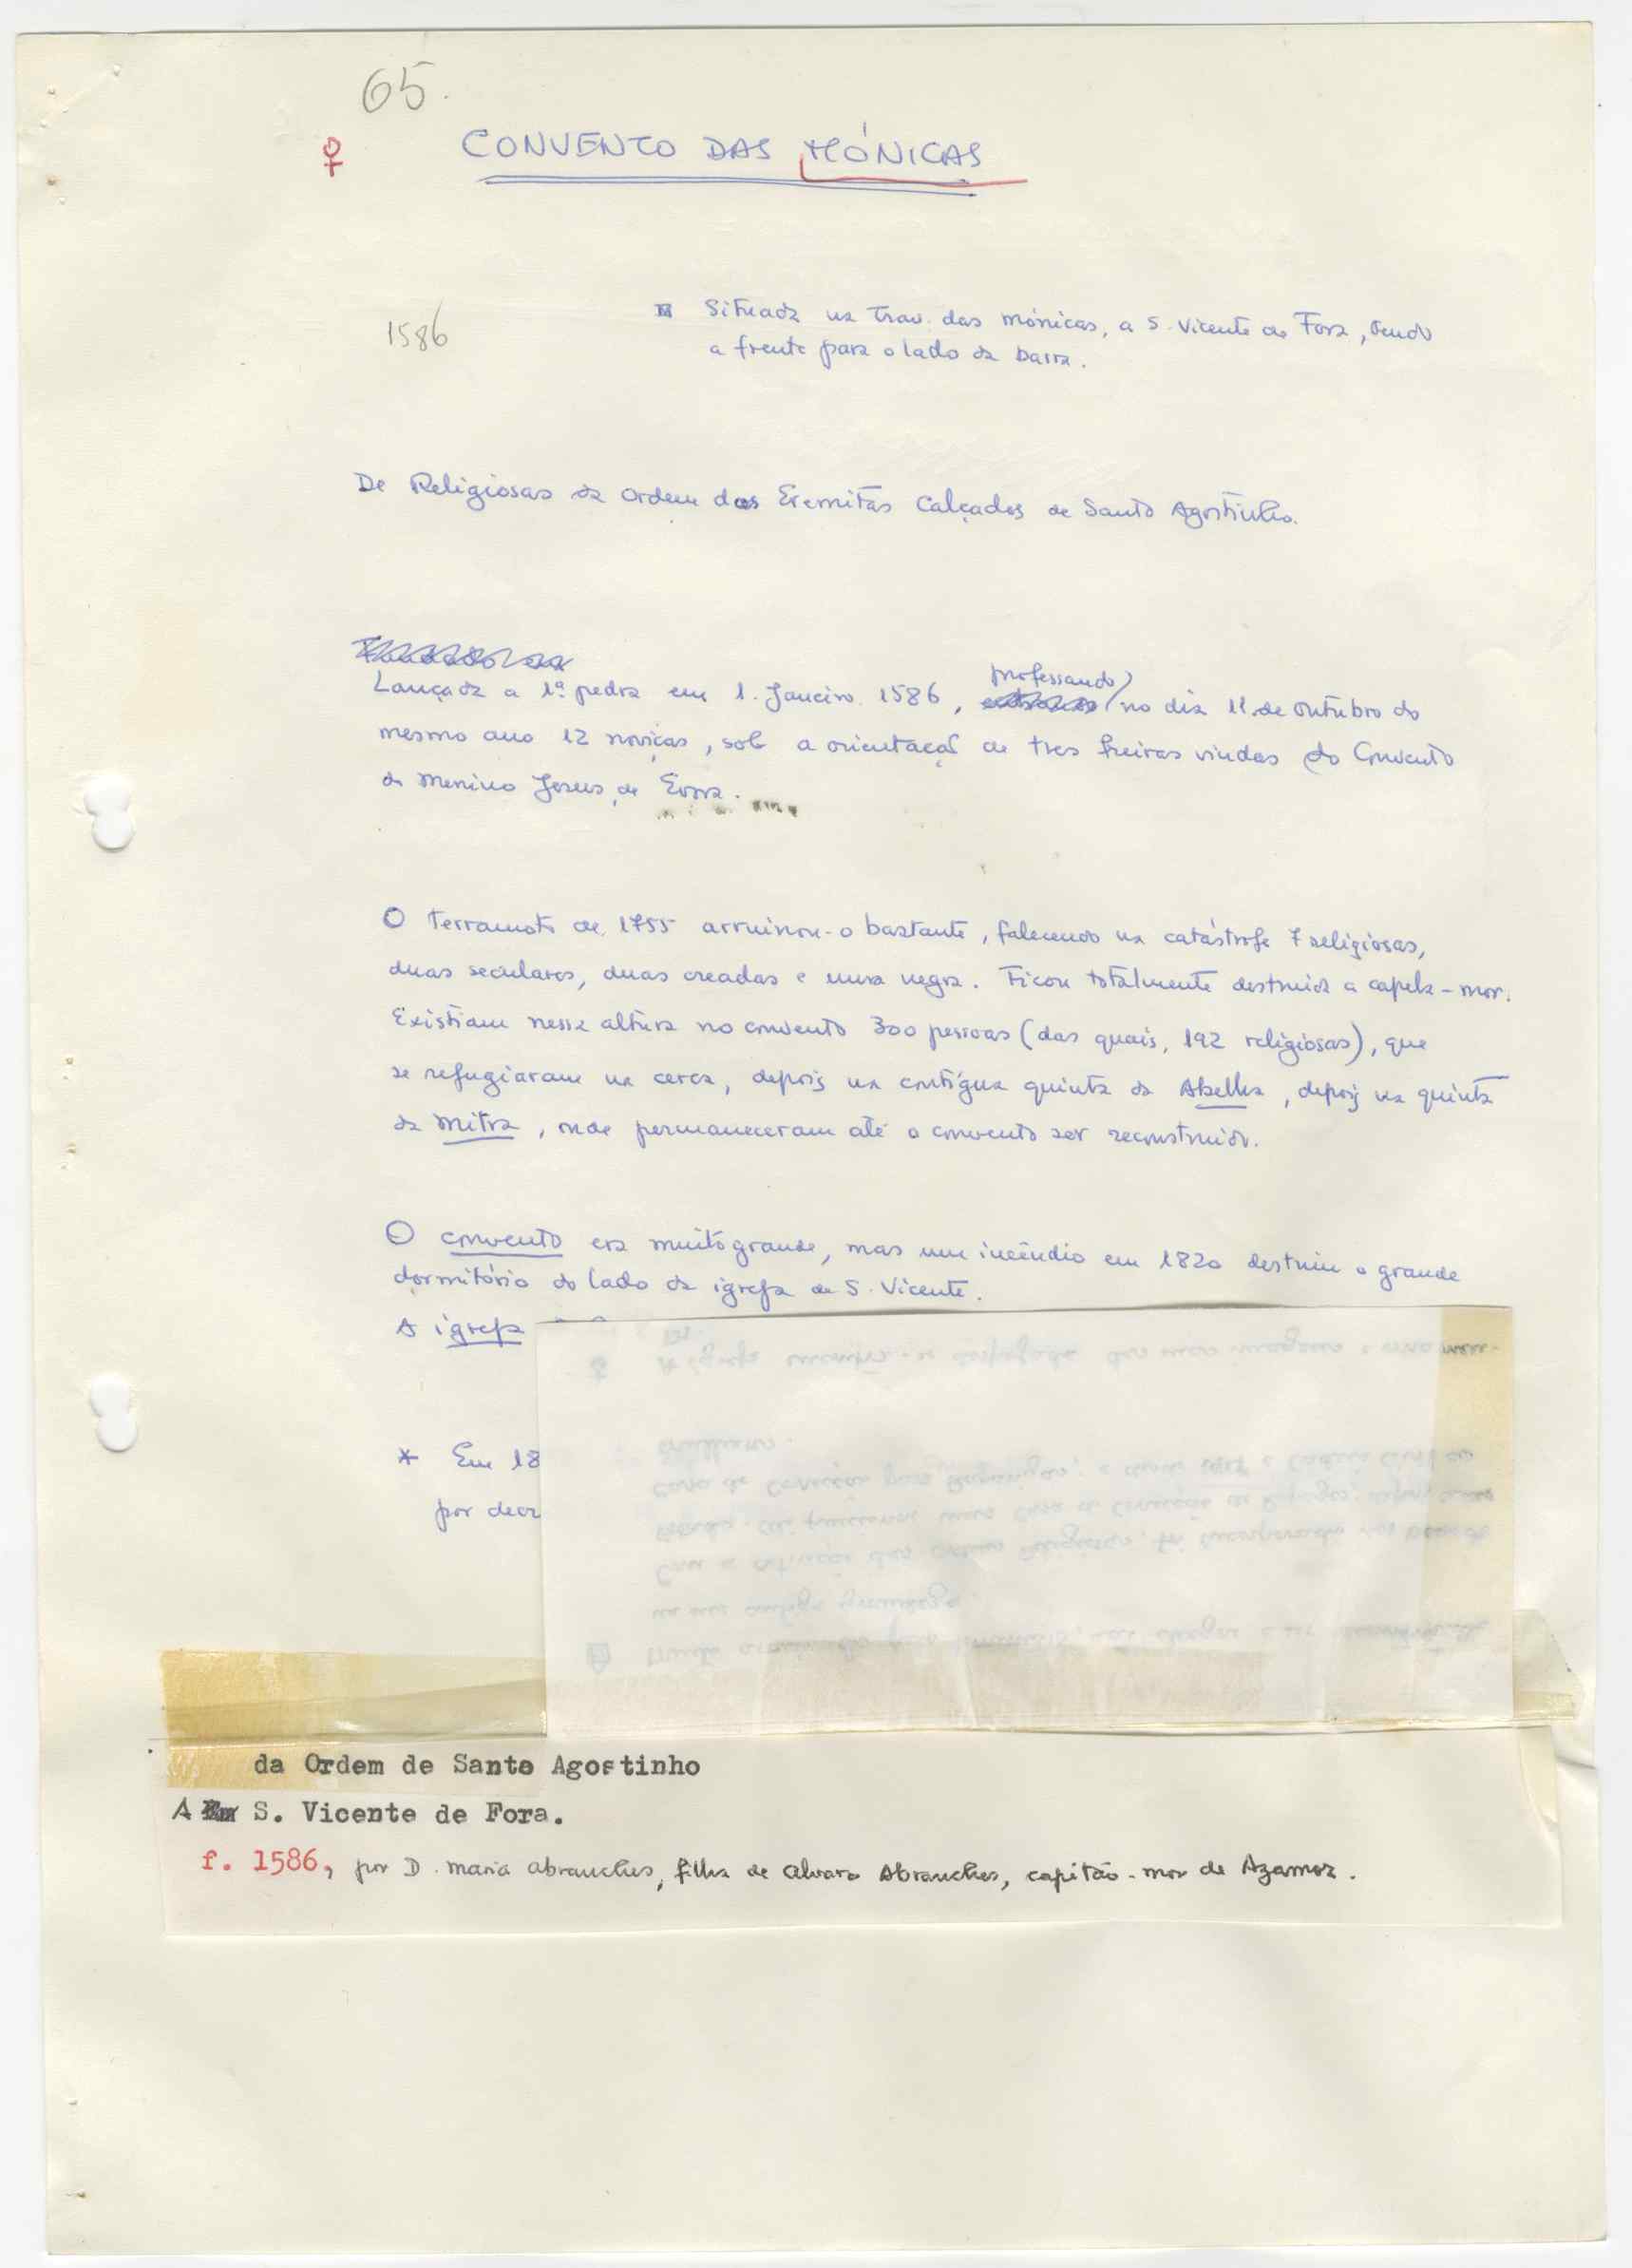 65.
♀ CONVENTO DAS MÓNICAS
Situada na Trav. das Mónicas, a S. Vicente de Fora, tendo
1586
a frente para o lado da barra.
De Religiosas da Ordem dos Eremitas Calçados de Santo Agostinho.
professando
Lançada a 1ª pedra em 1. Janeiro. 1586, no dia 11. de outubro do
mesmo ano 12 noviças, sob a orientação de tres freiras vindas do Convento
do Menino Jesus, de Evora.
O terramoto de 1755 arruinou-o bastante, falecendo na catástrofe 7 religiosas,
duas seculares, duas creadas e uma negra. Ficou totalmente destruida a capela-mor.
Existiam nessa altura no convento 300 pessoas (das quais, 192 religiosas), que
se refugiaram na cerca, depois na contígua quinta da Abelha, depois na quinta
da Mitra, onde permaneceram até o convento ser reconstruido.
O convento era muito grande, mas um incêndio em 1820 destruiu o grande
dormitório do lado da igreja de S. Vicente.
A igreja
* Em 18
por decr
da Ordem de Santo Agostinho
A S. Vicente de Fora.
f. 1586, por D. Maria Abranches, filha de Alvaro Abranches, capitão-mor de Azamor.